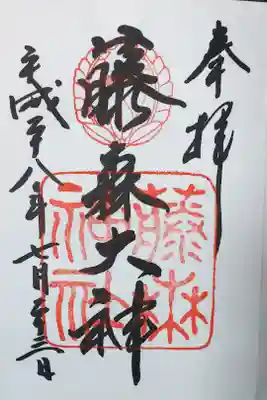 奉拝
藤森大神
藤森神社
平成二十八年七月二十三日